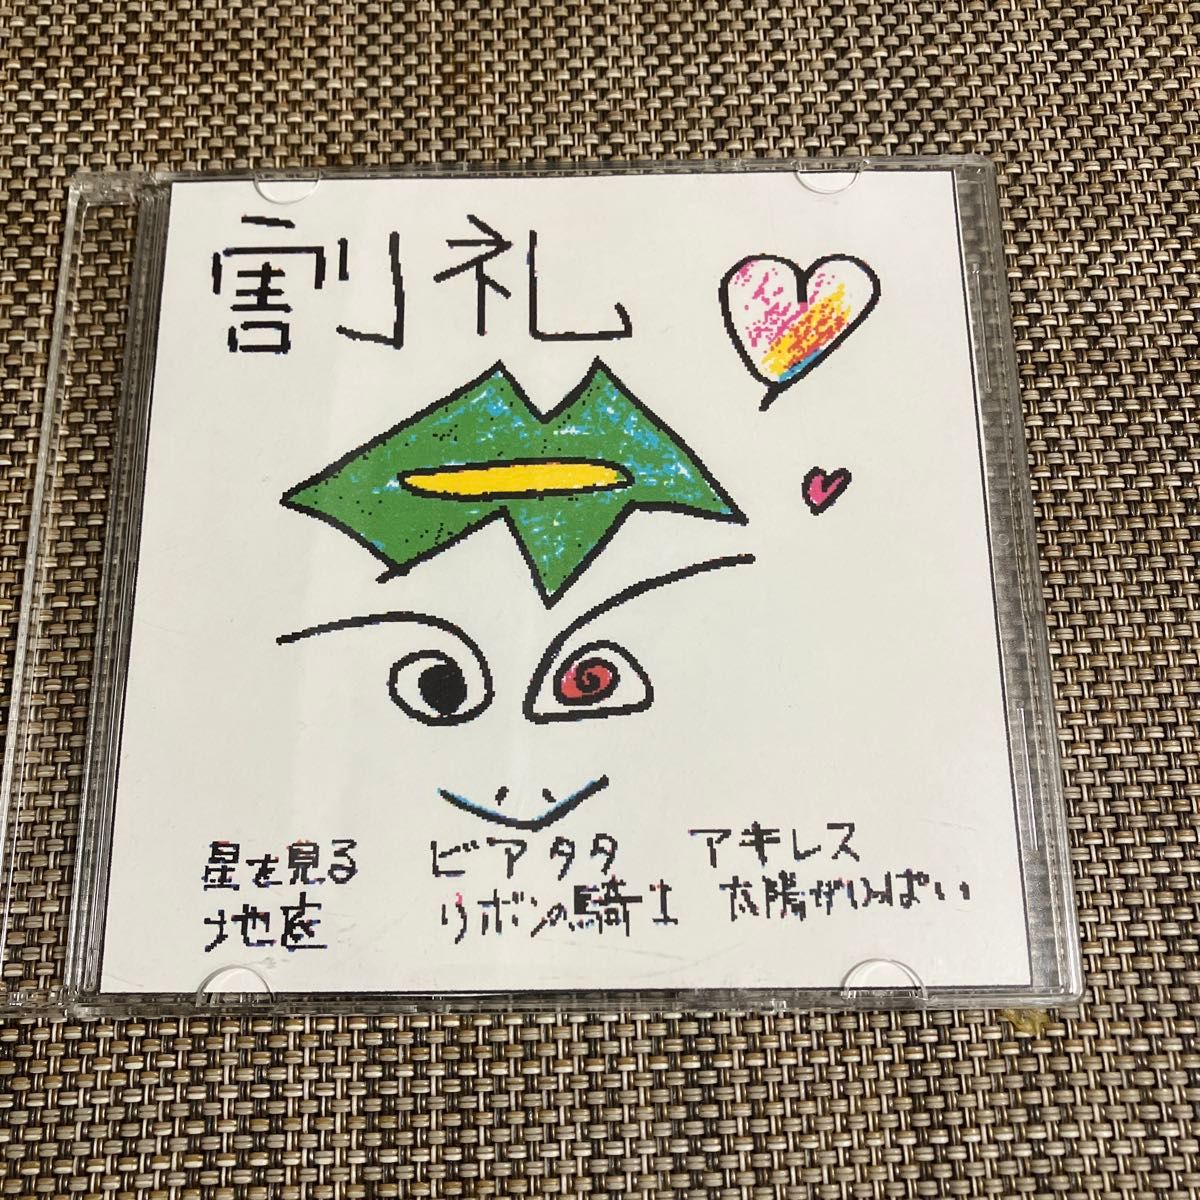 割礼
星を見る
ビアタタ
アキレス
地底
リボンの騎士
太陽がいっぱい